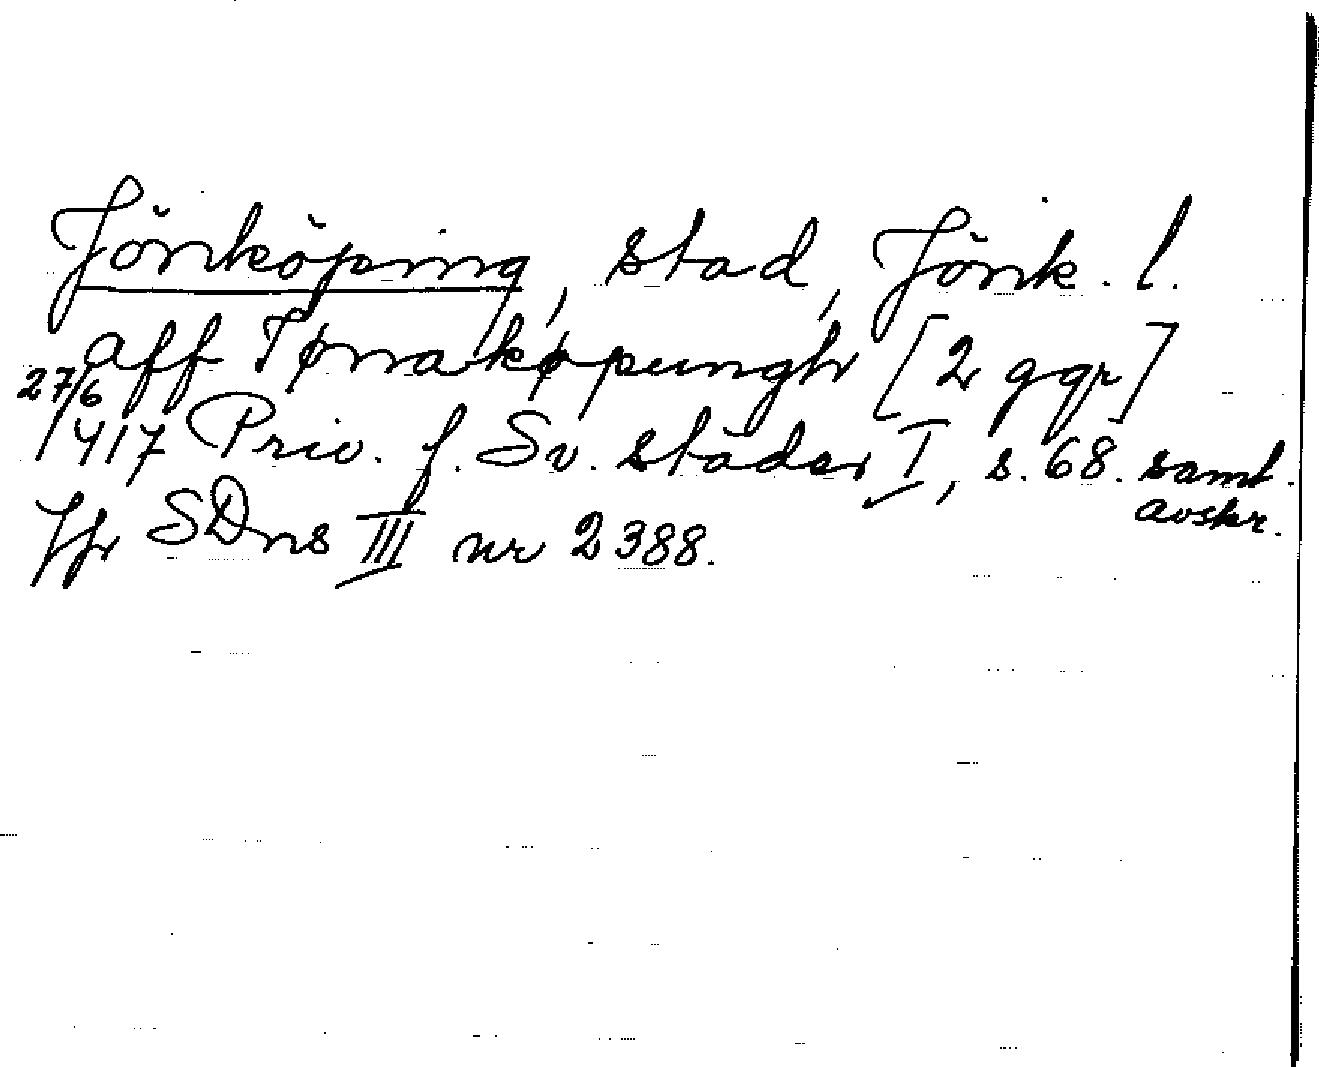 Jönköping, stad, Jönk. l.
aff Iønakøpungh [2 ggr]
27/6 1417 Priv. f. Sv. städer I, s. 68. samt
avskr.
Jfr SDns III nr 2388.